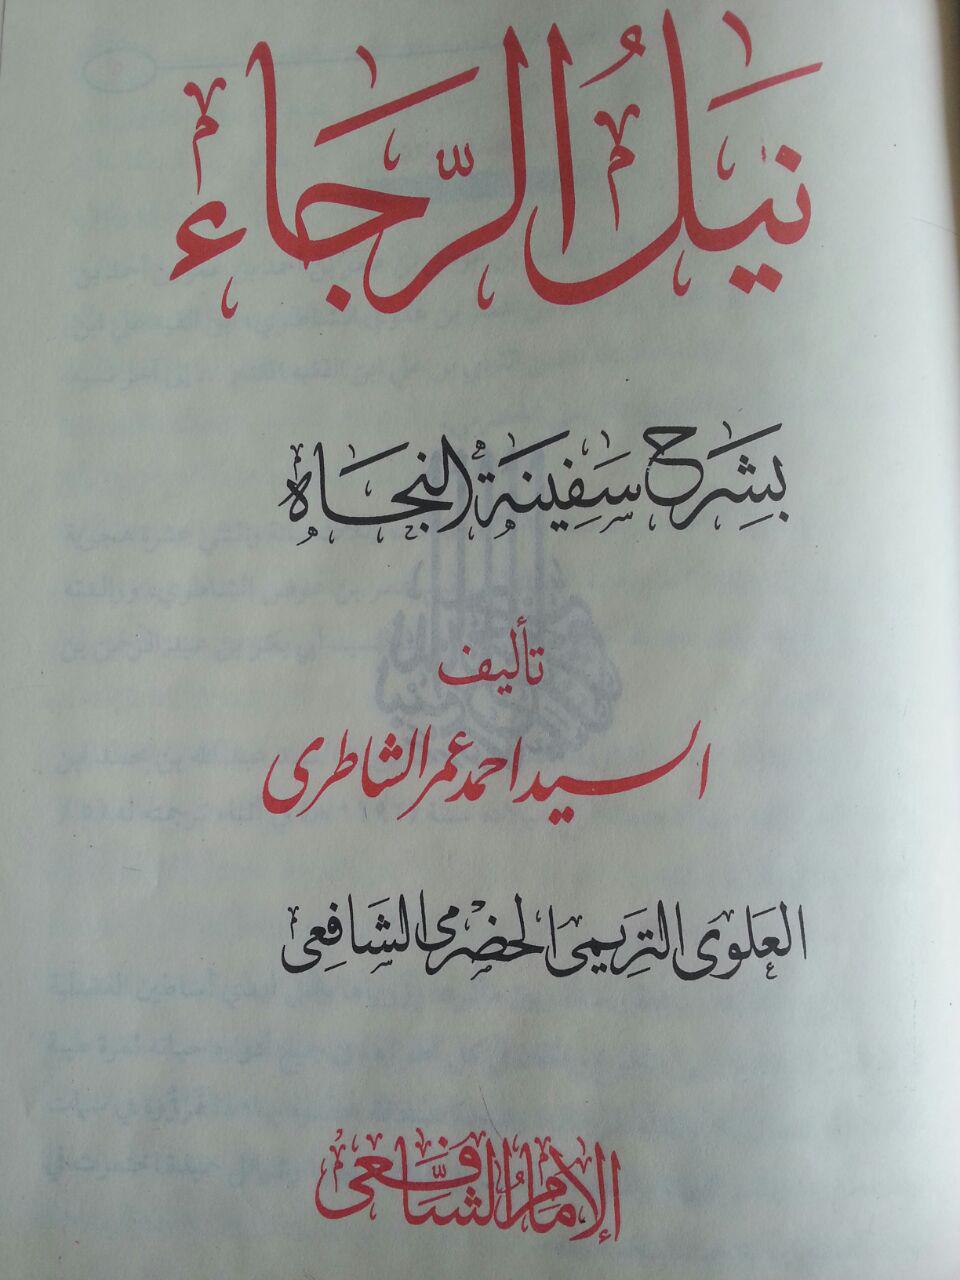 نيل الرجاء
بشرح سفينة النجاه
تأليف
السيد احمد عمر الشاطرى
العلوى التريمى الحضرمى الشافعى
الإمام الشافعى